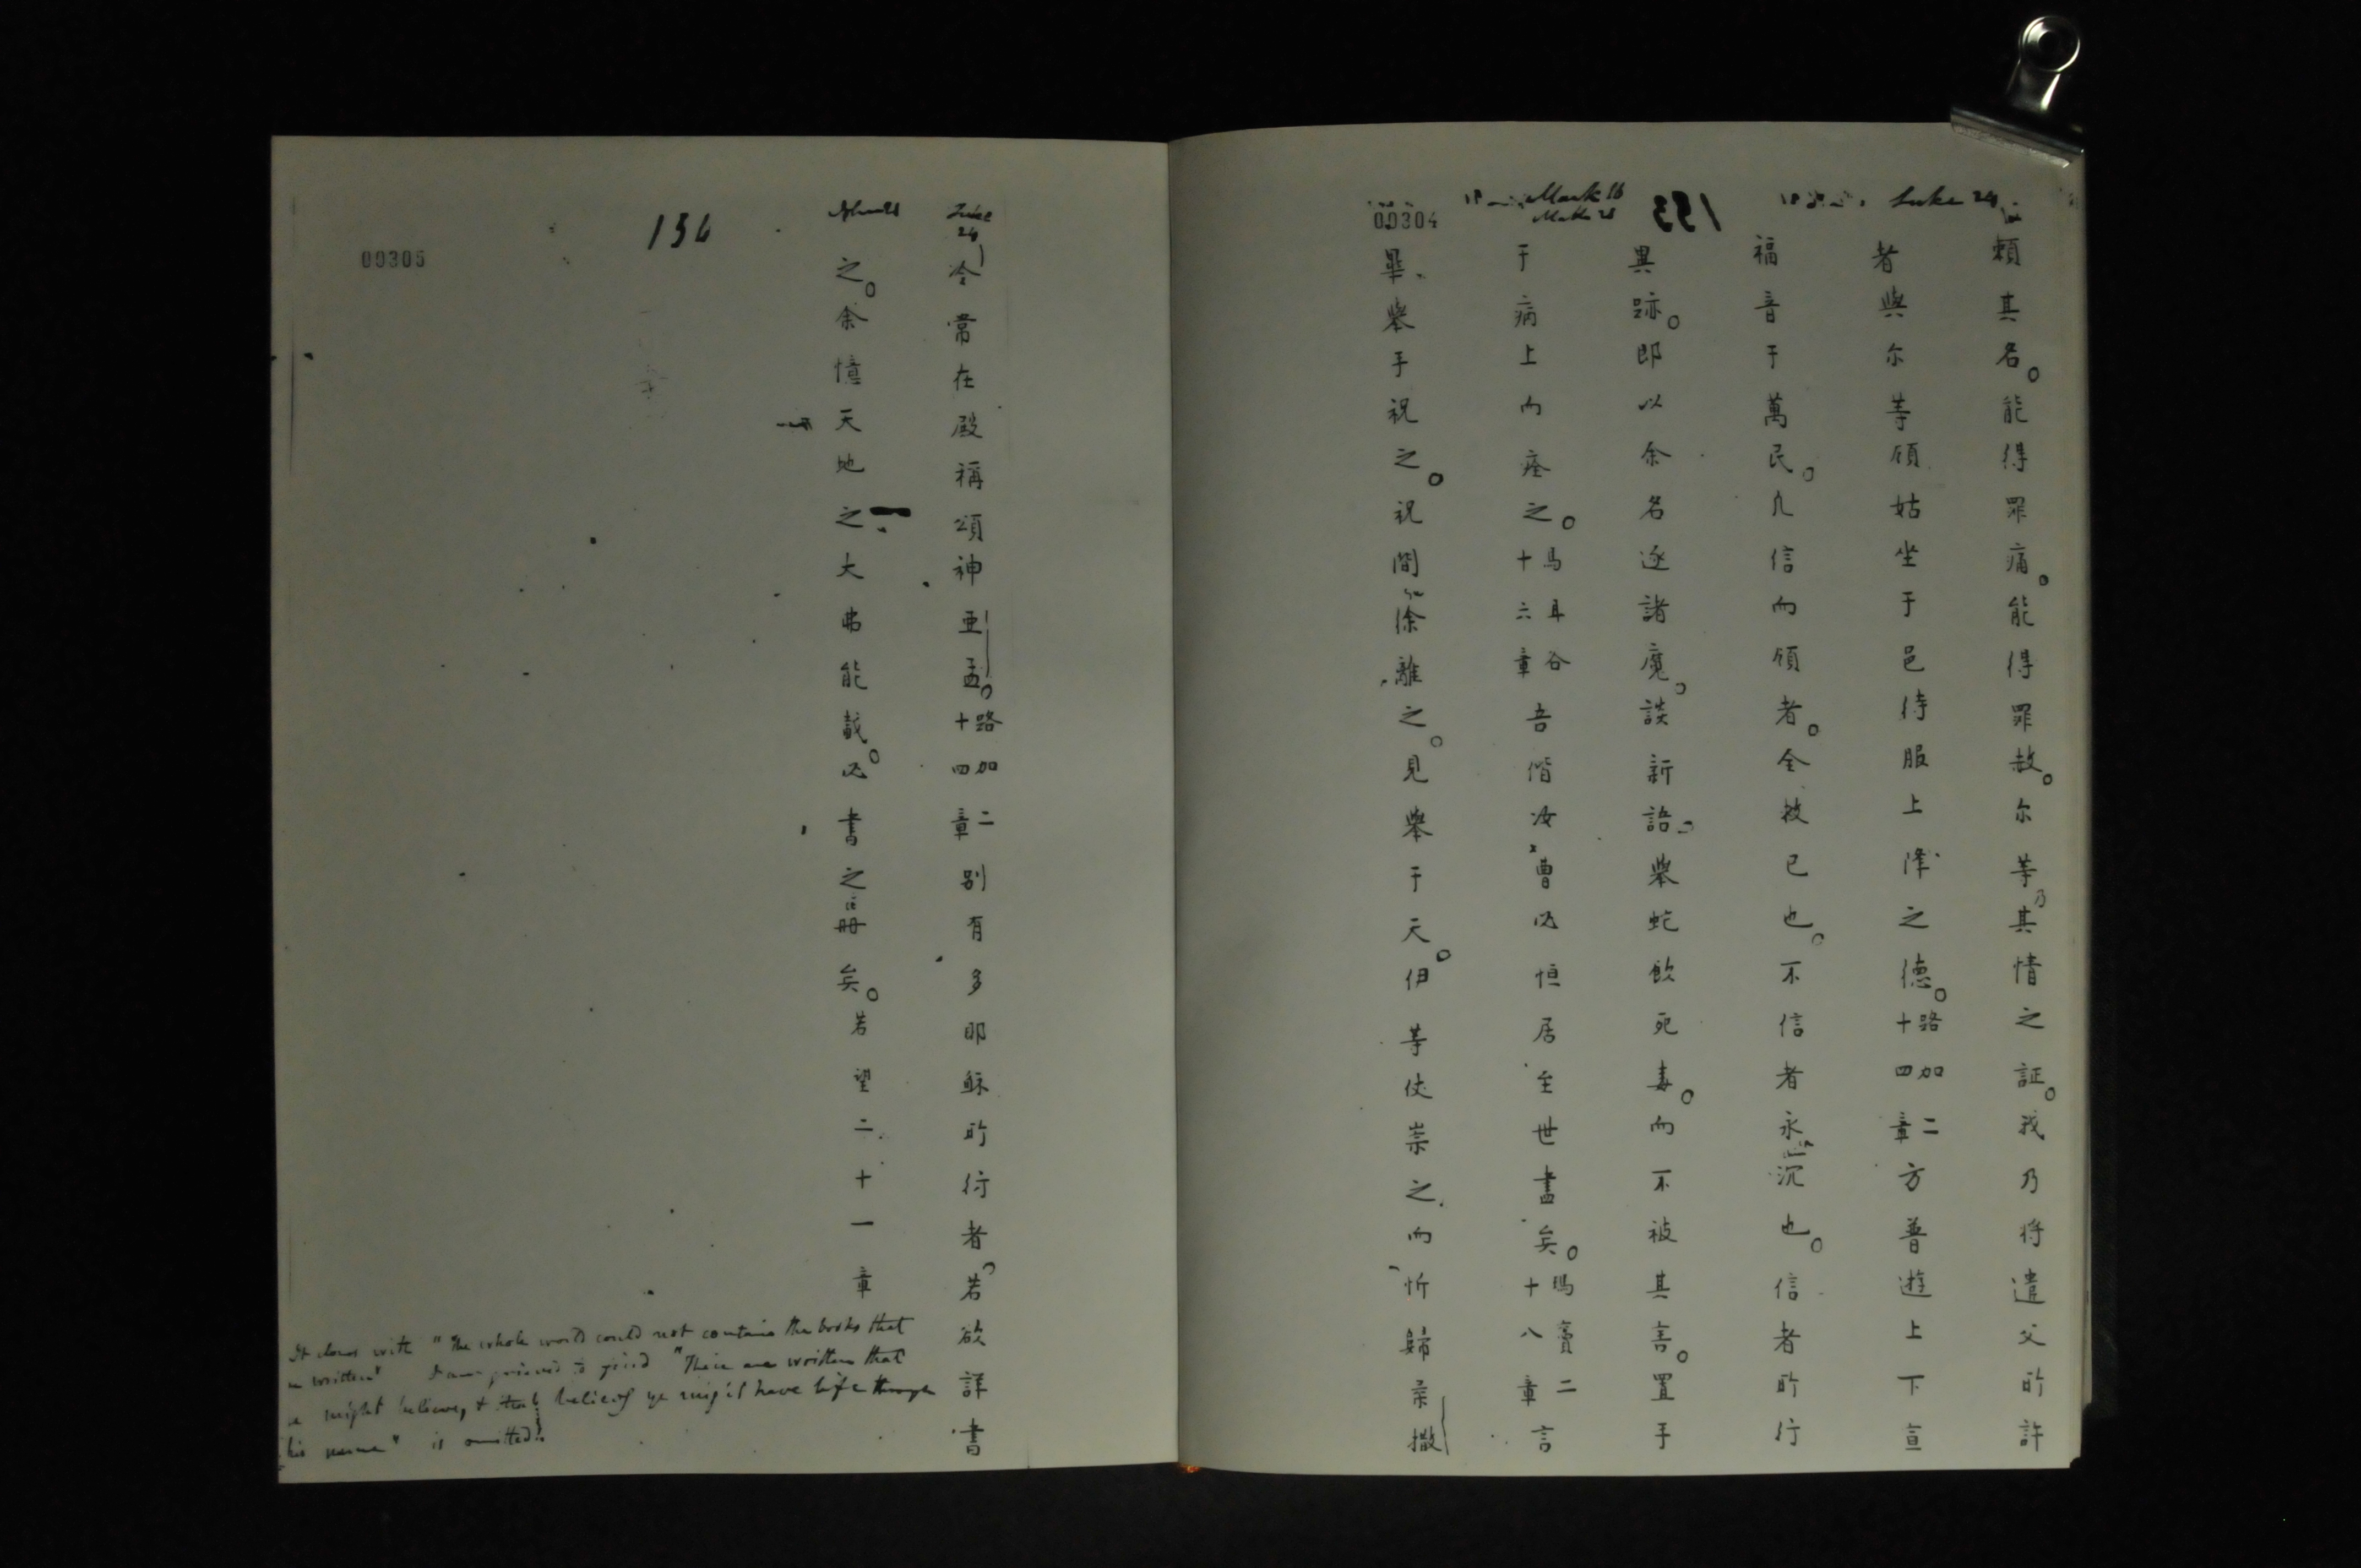 Luke 24
Mark 16
153
00304
賴其名。能得罪痛。能得罪赦。尔等乃其情之証。我乃將遣父所許
者與尔等。願姑坐于邑待服上降之德。路加二十四章方普遊上下宣
福音于萬民。凡信而領者。全救已也。不信者永沉也。信者所行
異跡。即以余名逐諸魔。談新語。舉蛇飲死毒。而不被其害。置手
于病上而痊之。馬耳谷十六章吾偕汝曹必恒居至世盡矣。瑪竇二十八章言
畢、舉手祝之。祝間徐離之。見舉于天。伊等伏崇之、而忻歸柔撒
Luke
24
136
00305
冷常在殿稱頌神亞孟。路加二十四章別有多耶穌所行者。若欲詳書
之。余憶天地之大弗能載。必書之冊矣。若望二十一章
It closes with "The whole world could not contain the books that
written" "These are written that
might believe, & that believing ye might have life through
his name" is omitted!